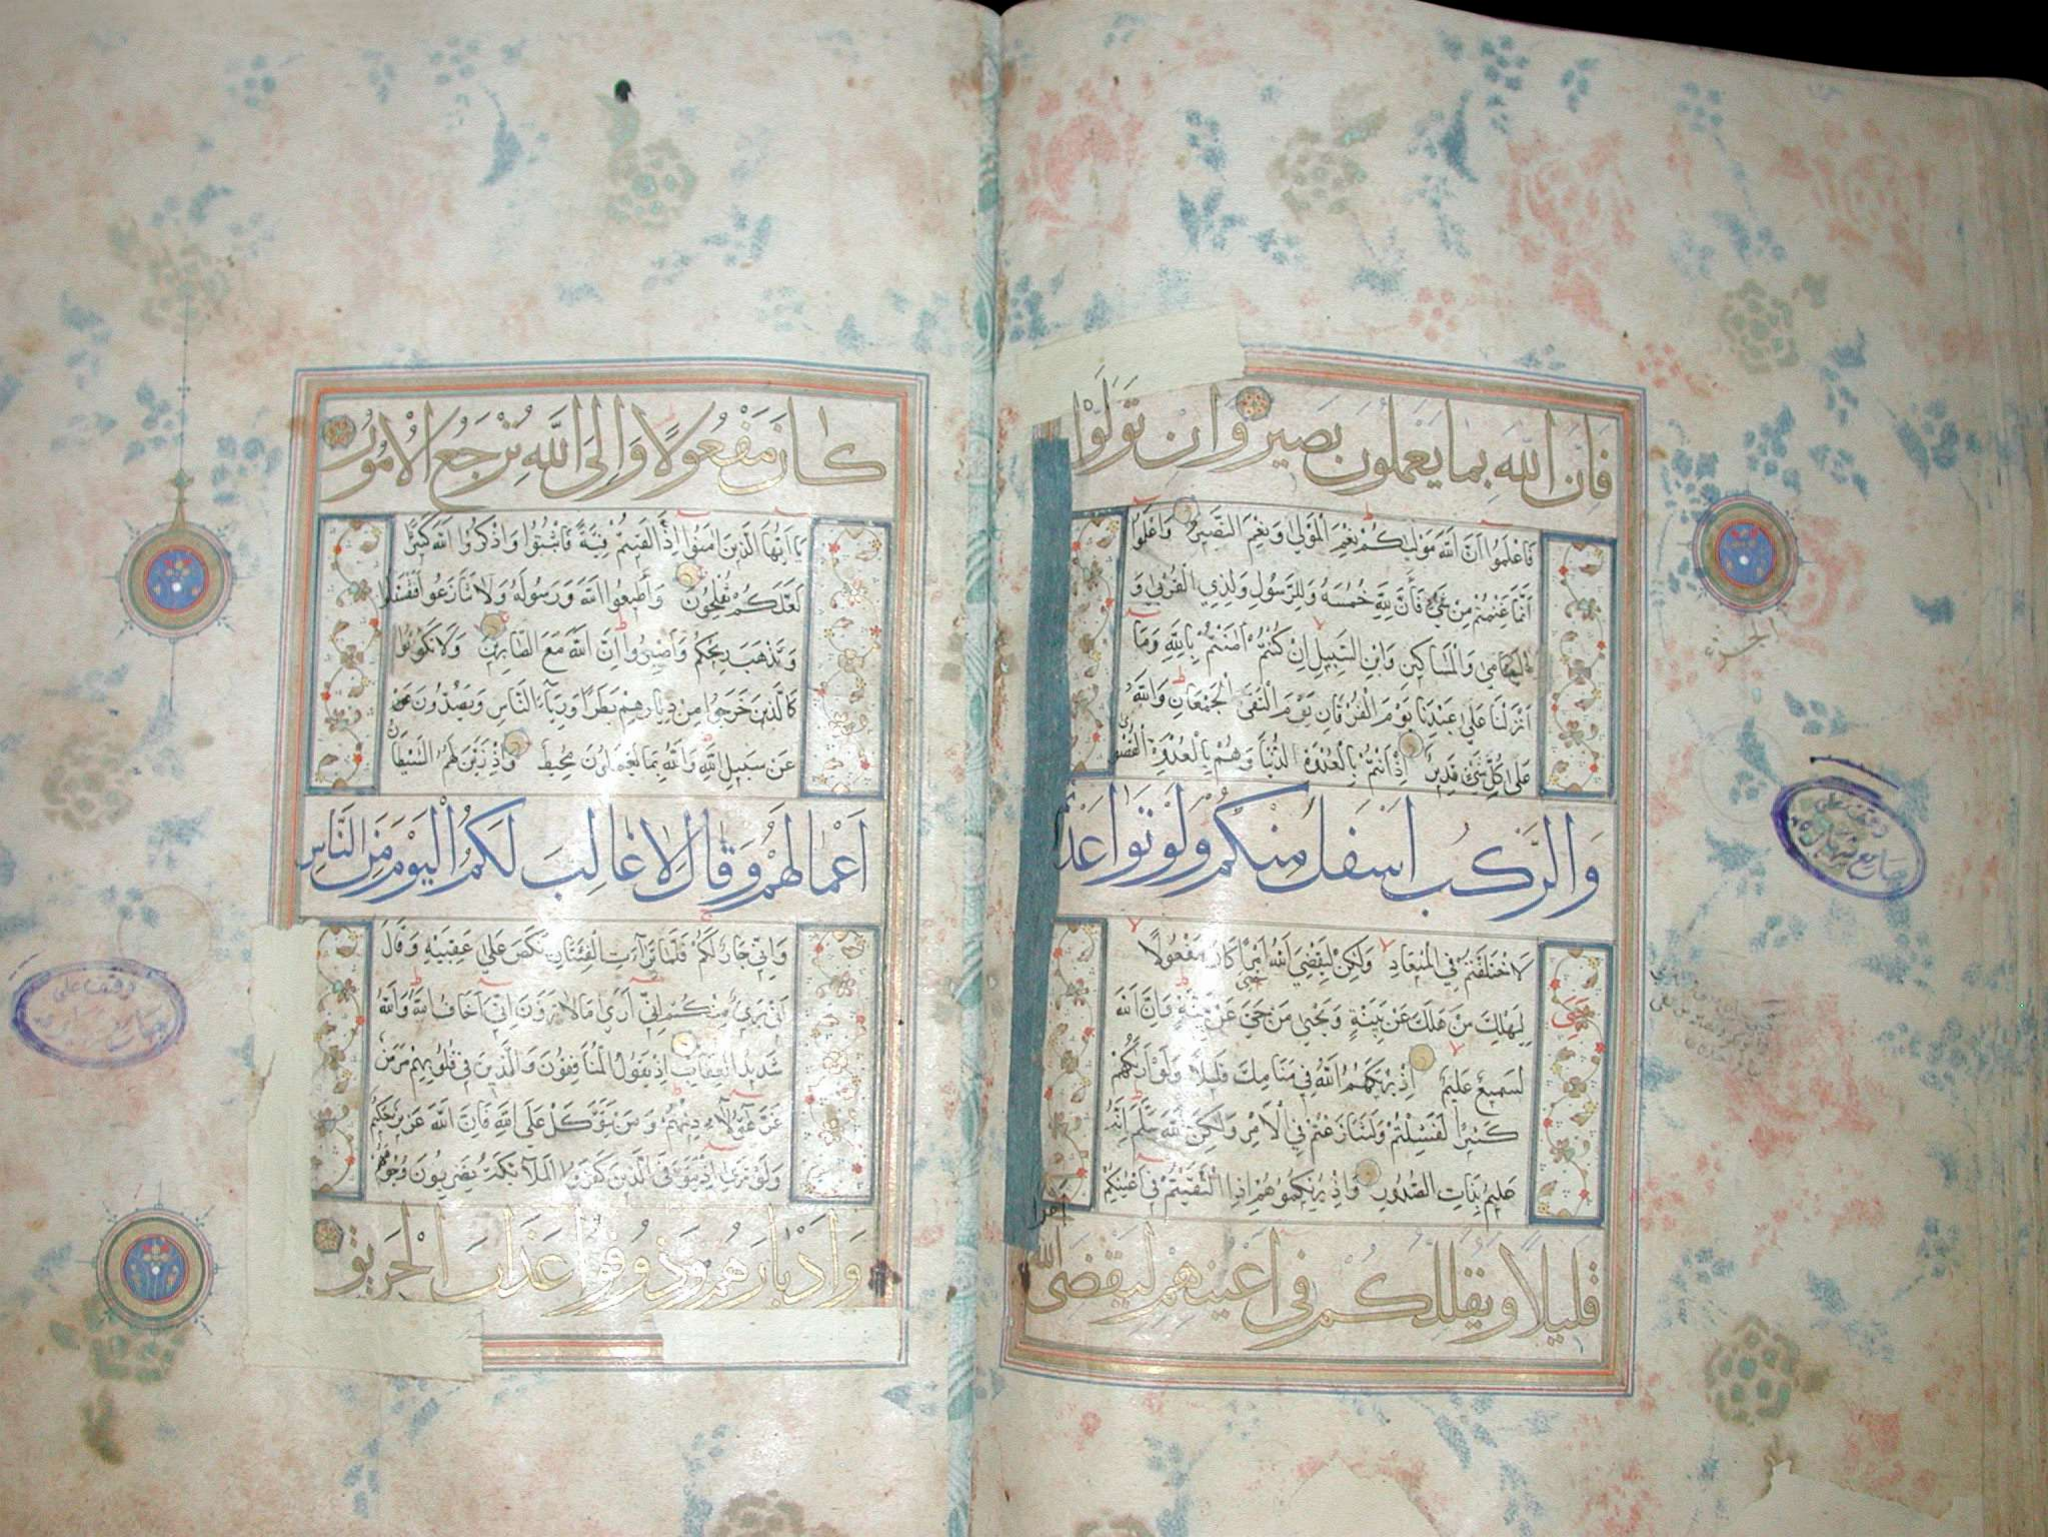 فَاِنَّ اللهَ بِمَا يَعْمَلُونَ بَصِيرٌ وَاِنْ تَوَلَّوْا
فَاعْلَمُوا اَنَّ اللهَ مَوْلٰيكُمْ نِعْمَ الْمَوْلٰى وَنِعْمَ النَّصِيرُ وَاعْلَمُوا
اَنَّمَا غَنِمْتُمْ مِنْ شَيْءٍ فَاَنَّ لِلّٰهِ خُمُسَهُ وَلِلرَّسُولِ وَلِذِي الْقُرْبٰى وَ
الْيَتَامٰى وَالْمَسَاكِينِ وَابْنِ السَّبِيلِ اِنْ كُنْتُمْ اٰمَنْتُمْ بِاللهِ وَمَا
اَنْزَلْنَا عَلٰى عَبْدِنَا يَوْمَ الْفُرْقَانِ يَوْمَ الْتَقَى الْجَمْعَانِ وَاللهُ
عَلٰى كُلِّ شَيْءٍ قَدِيرٌ اِذْ اَنْتُمْ بِالْعُدْوَةِ الدُّنْيَا وَهُمْ بِالْعُدْوَةِ الْقُصْوٰى
وَالرَّكْبُ اَسْفَلَ مِنْكُمْ وَلَوْ تَوَاعَدْتُمْ
لَاخْتَلَفْتُمْ فِي الْمِيعَادِ وَلٰكِنْ لِيَقْضِيَ اللهُ اَمْرًا كَانَ مَفْعُولًا
لِيَهْلِكَ مَنْ هَلَكَ عَنْ بَيِّنَةٍ وَيَحْيٰى مَنْ حَيَّ عَنْ بَيِّنَةٍ وَاِنَّ اللهَ
لَسَمِيعٌ عَلِيمٌ اِذْ يُرِيكَهُمُ اللهُ فِي مَنَامِكَ قَلِيلًا وَلَوْ اَرٰيكَهُمْ
كَثِيرًا لَفَشِلْتُمْ وَلَتَنَازَعْتُمْ فِي الْاَمْرِ وَلٰكِنَّ اللهَ سَلَّمَ اِنَّهُ
عَلِيمٌ بِذَاتِ الصُّدُورِ وَاِذْ يُرِيكُمُوهُمْ اِذِ الْتَقَيْتُمْ فِي اَعْيُنِكُمْ
قَلِيلًا وَيُقَلِّلُكُمْ فِي اَعْيُنِهِمْ لِيَقْضِيَ اللهُ
اَمْرًا
وقف على
جامع
كَانَ مَفْعُولًا وَاِلَى اللهِ تُرْجَعُ الْاُمُورُ
يَا اَيُّهَا الَّذِينَ اٰمَنُوا اِذَا لَقِيتُمْ فِئَةً فَاثْبُتُوا وَاذْكُرُوا اللهَ كَثِيرًا
لَعَلَّكُمْ تُفْلِحُونَ وَاَطِيعُوا اللهَ وَرَسُولَهُ وَلَا تَنَازَعُوا فَتَفْشَلُوا
وَتَذْهَبَ رِيحُكُمْ وَاصْبِرُوا اِنَّ اللهَ مَعَ الصَّابِرِينَ وَلَا تَكُونُوا
كَالَّذِينَ خَرَجُوا مِنْ دِيَارِهِمْ بَطَرًا وَرِئَاءَ النَّاسِ وَيَصُدُّونَ عَنْ
عَنْ سَبِيلِ اللهِ وَاللهُ بِمَا يَعْمَلُونَ مُحِيطٌ وَاِذْ زَيَّنَ لَهُمُ الشَّيْطَانُ
اَعْمَالَهُمْ وَقَالَ لَا غَالِبَ لَكُمُ الْيَوْمَ مِنَ النَّاسِ
وَاِنِّي جَارٌ لَكُمْ فَلَمَّا تَرَاءَتِ الْفِئَتَانِ نَكَصَ عَلٰى عَقِبَيْهِ وَقَالَ
اِنِّي بَرِيءٌ مِنْكُمْ اِنِّي اَرٰى مَا لَا تَرَوْنَ اِنِّي اَخَافُ اللهَ وَاللهُ
شَدِيدُ الْعِقَابِ اِذْ يَقُولُ الْمُنَافِقُونَ وَالَّذِينَ فِي قُلُوبِهِمْ مَرَضٌ
غَرَّ هٰؤُلَاءِ دِينُهُمْ وَمَنْ يَتَوَكَّلْ عَلَى اللهِ فَاِنَّ اللهَ عَزِيزٌ حَكِيمٌ
وَلَوْ تَرٰى اِذْ يَتَوَفَّى الَّذِينَ كَفَرُوا الْمَلٰئِكَةُ يَضْرِبُونَ وُجُوهَهُمْ
وَاَدْبَارَهُمْ وَذُوقُوا عَذَابَ الْحَرِيقِ
وقف على